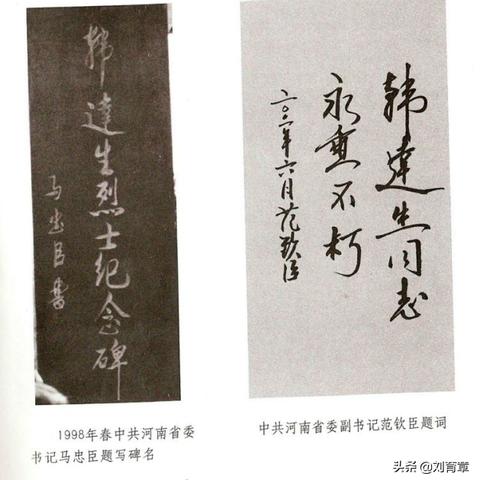 韩達生烈士纪念碑
马忠臣書
韩達生同志
永垂不朽
二〇〇一年六月范钦臣
1998年春中共河南省委
书记马忠臣题写碑名
中共河南省委副书记范钦臣题词
头条 @刘育章